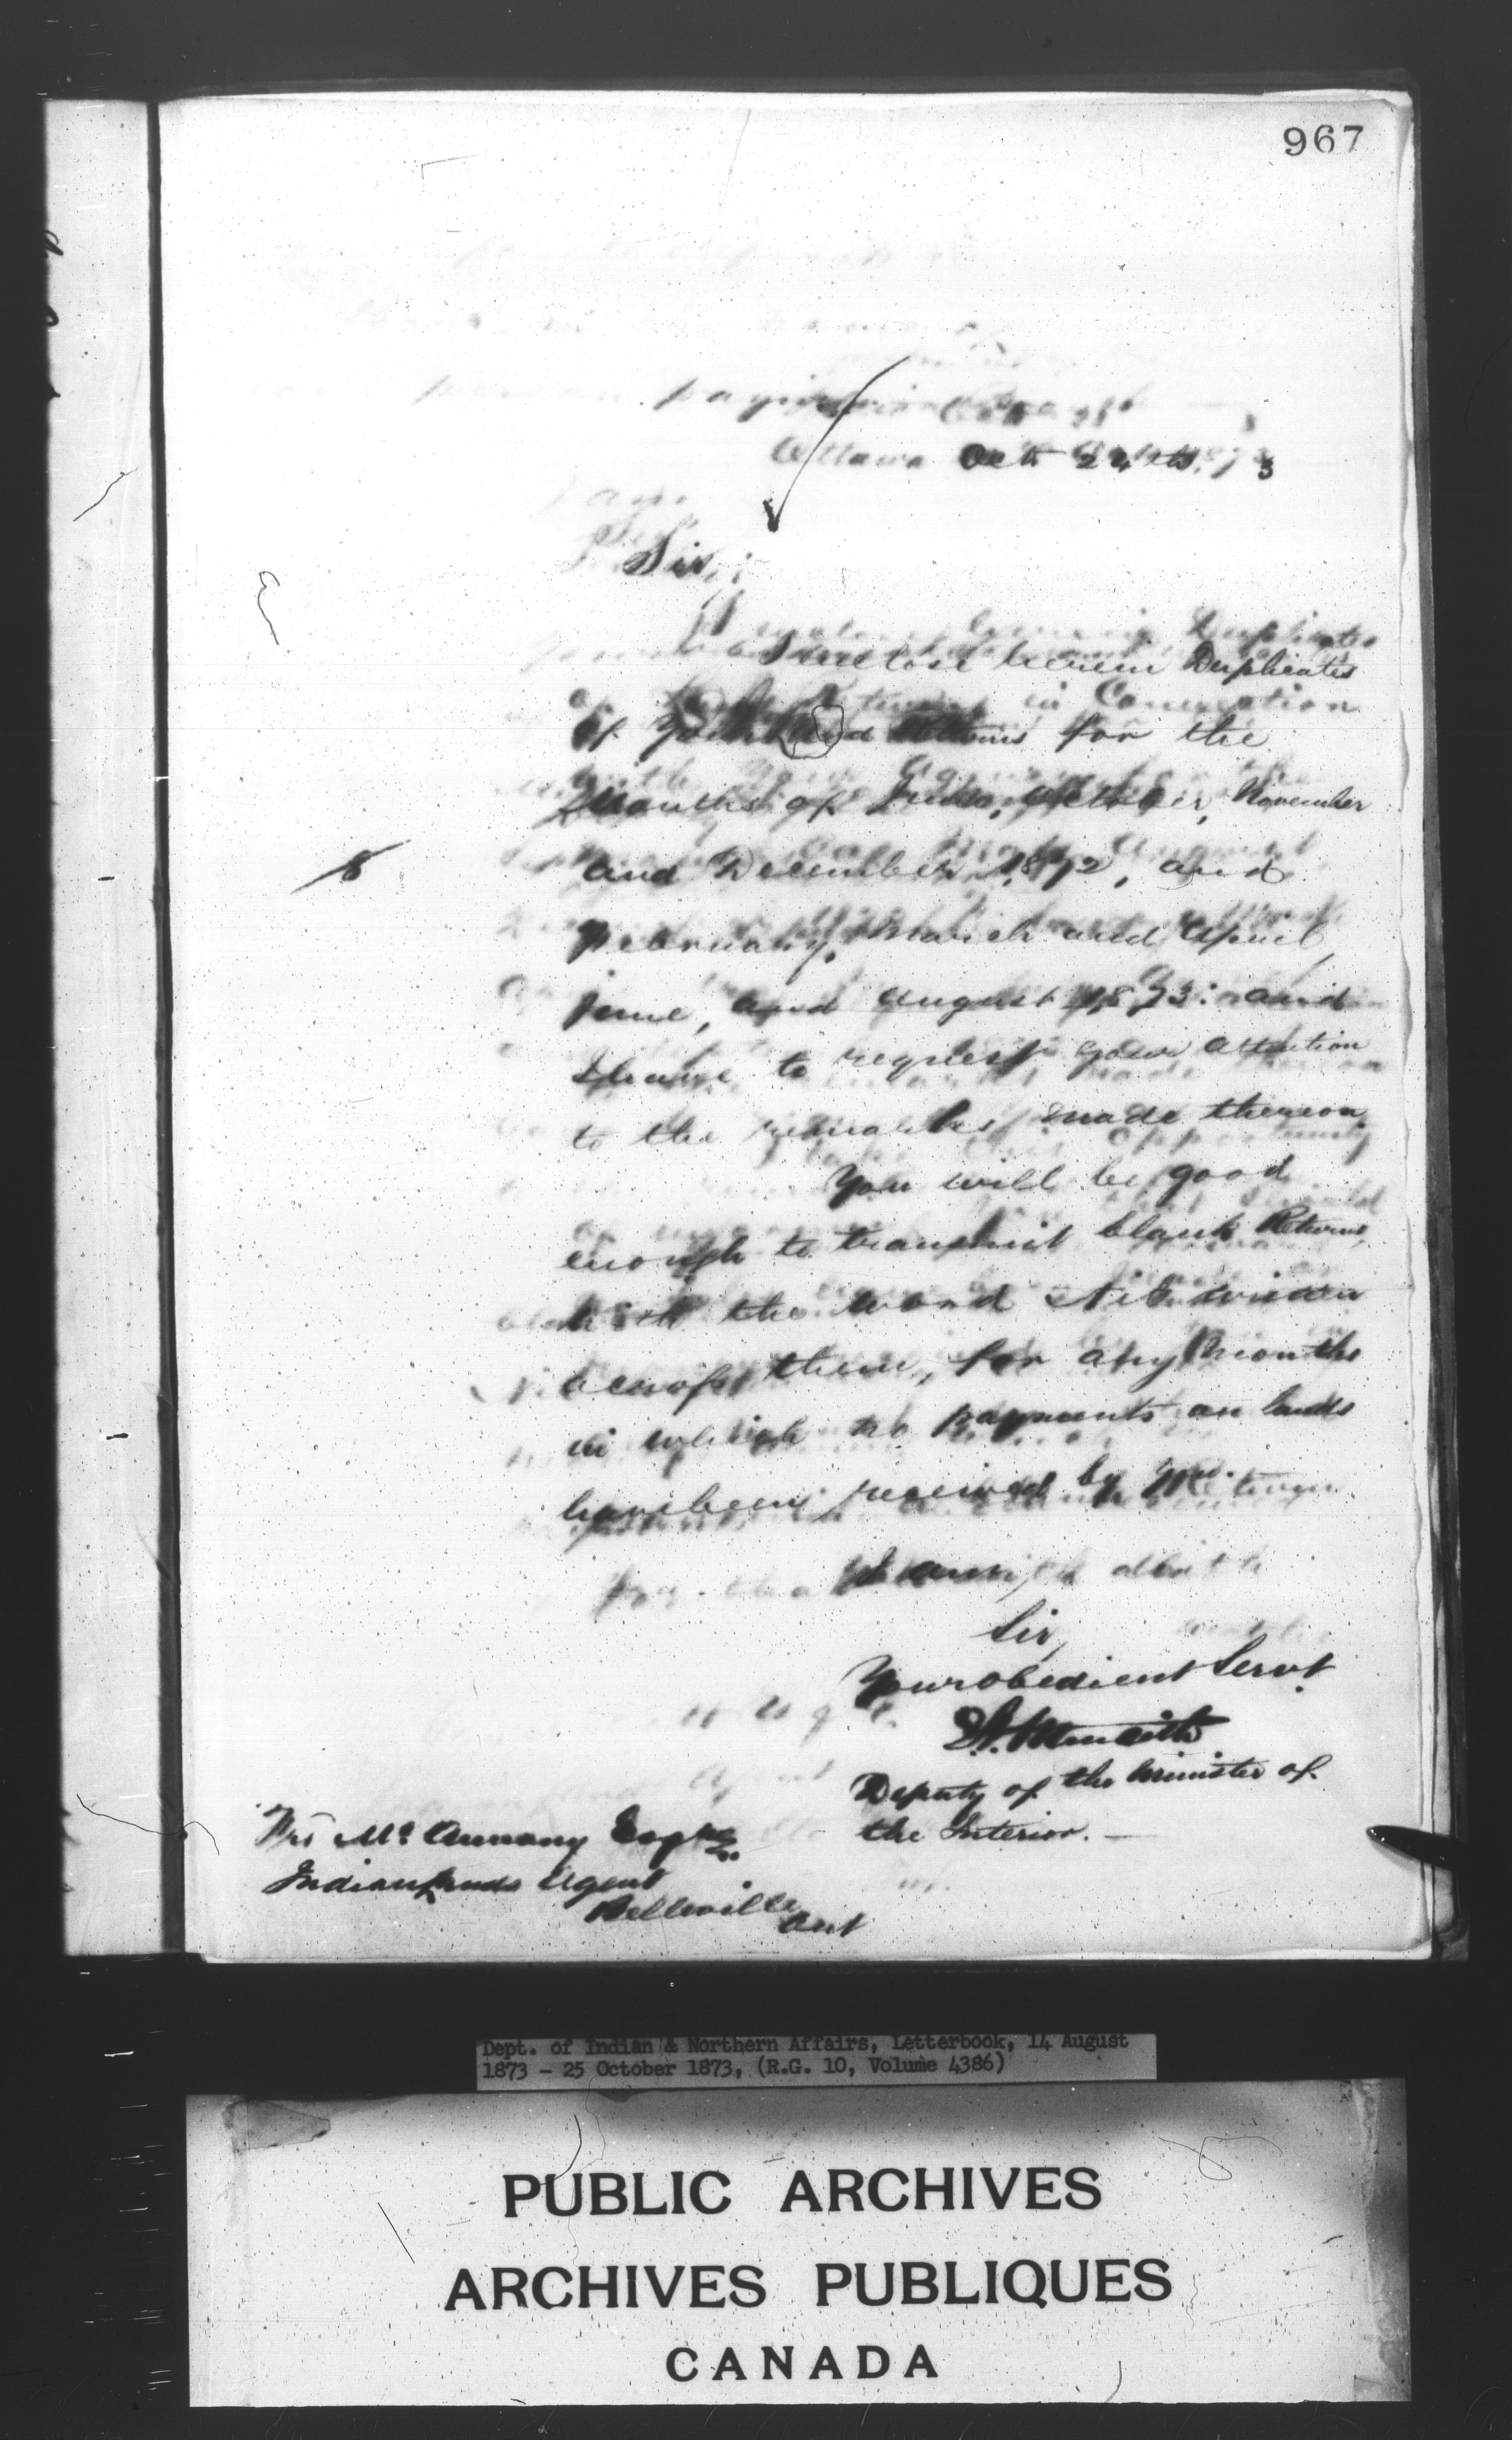 967
Ottawa Oct 24th 1873
Sir,
I enclose herein Duplicates
of your Land Returns for the
Months of June, October, November
and December, 1872, and
February, March and April,
June, and August 1873: and
I have to request your attention
to the remarks made thereon
You will be good
enough to transmit blank Returns,
with the word Nil written
across them, for any months
in which no payments on lands
have been received by you.
I am,
Sir,
Your obedient Servt
Deputy of the Minister of
the Interior.—
Wm Mc Annany Esqre
Indian Lands Agent
Belleville
Ont
Dept. of Indian & Northern Affairs, Letterbook, 14 August
1873 - 25 October 1873, (R.G. 10, Volume 4386)
PUBLIC ARCHIVES
ARCHIVES PUBLIQUES
CANADA